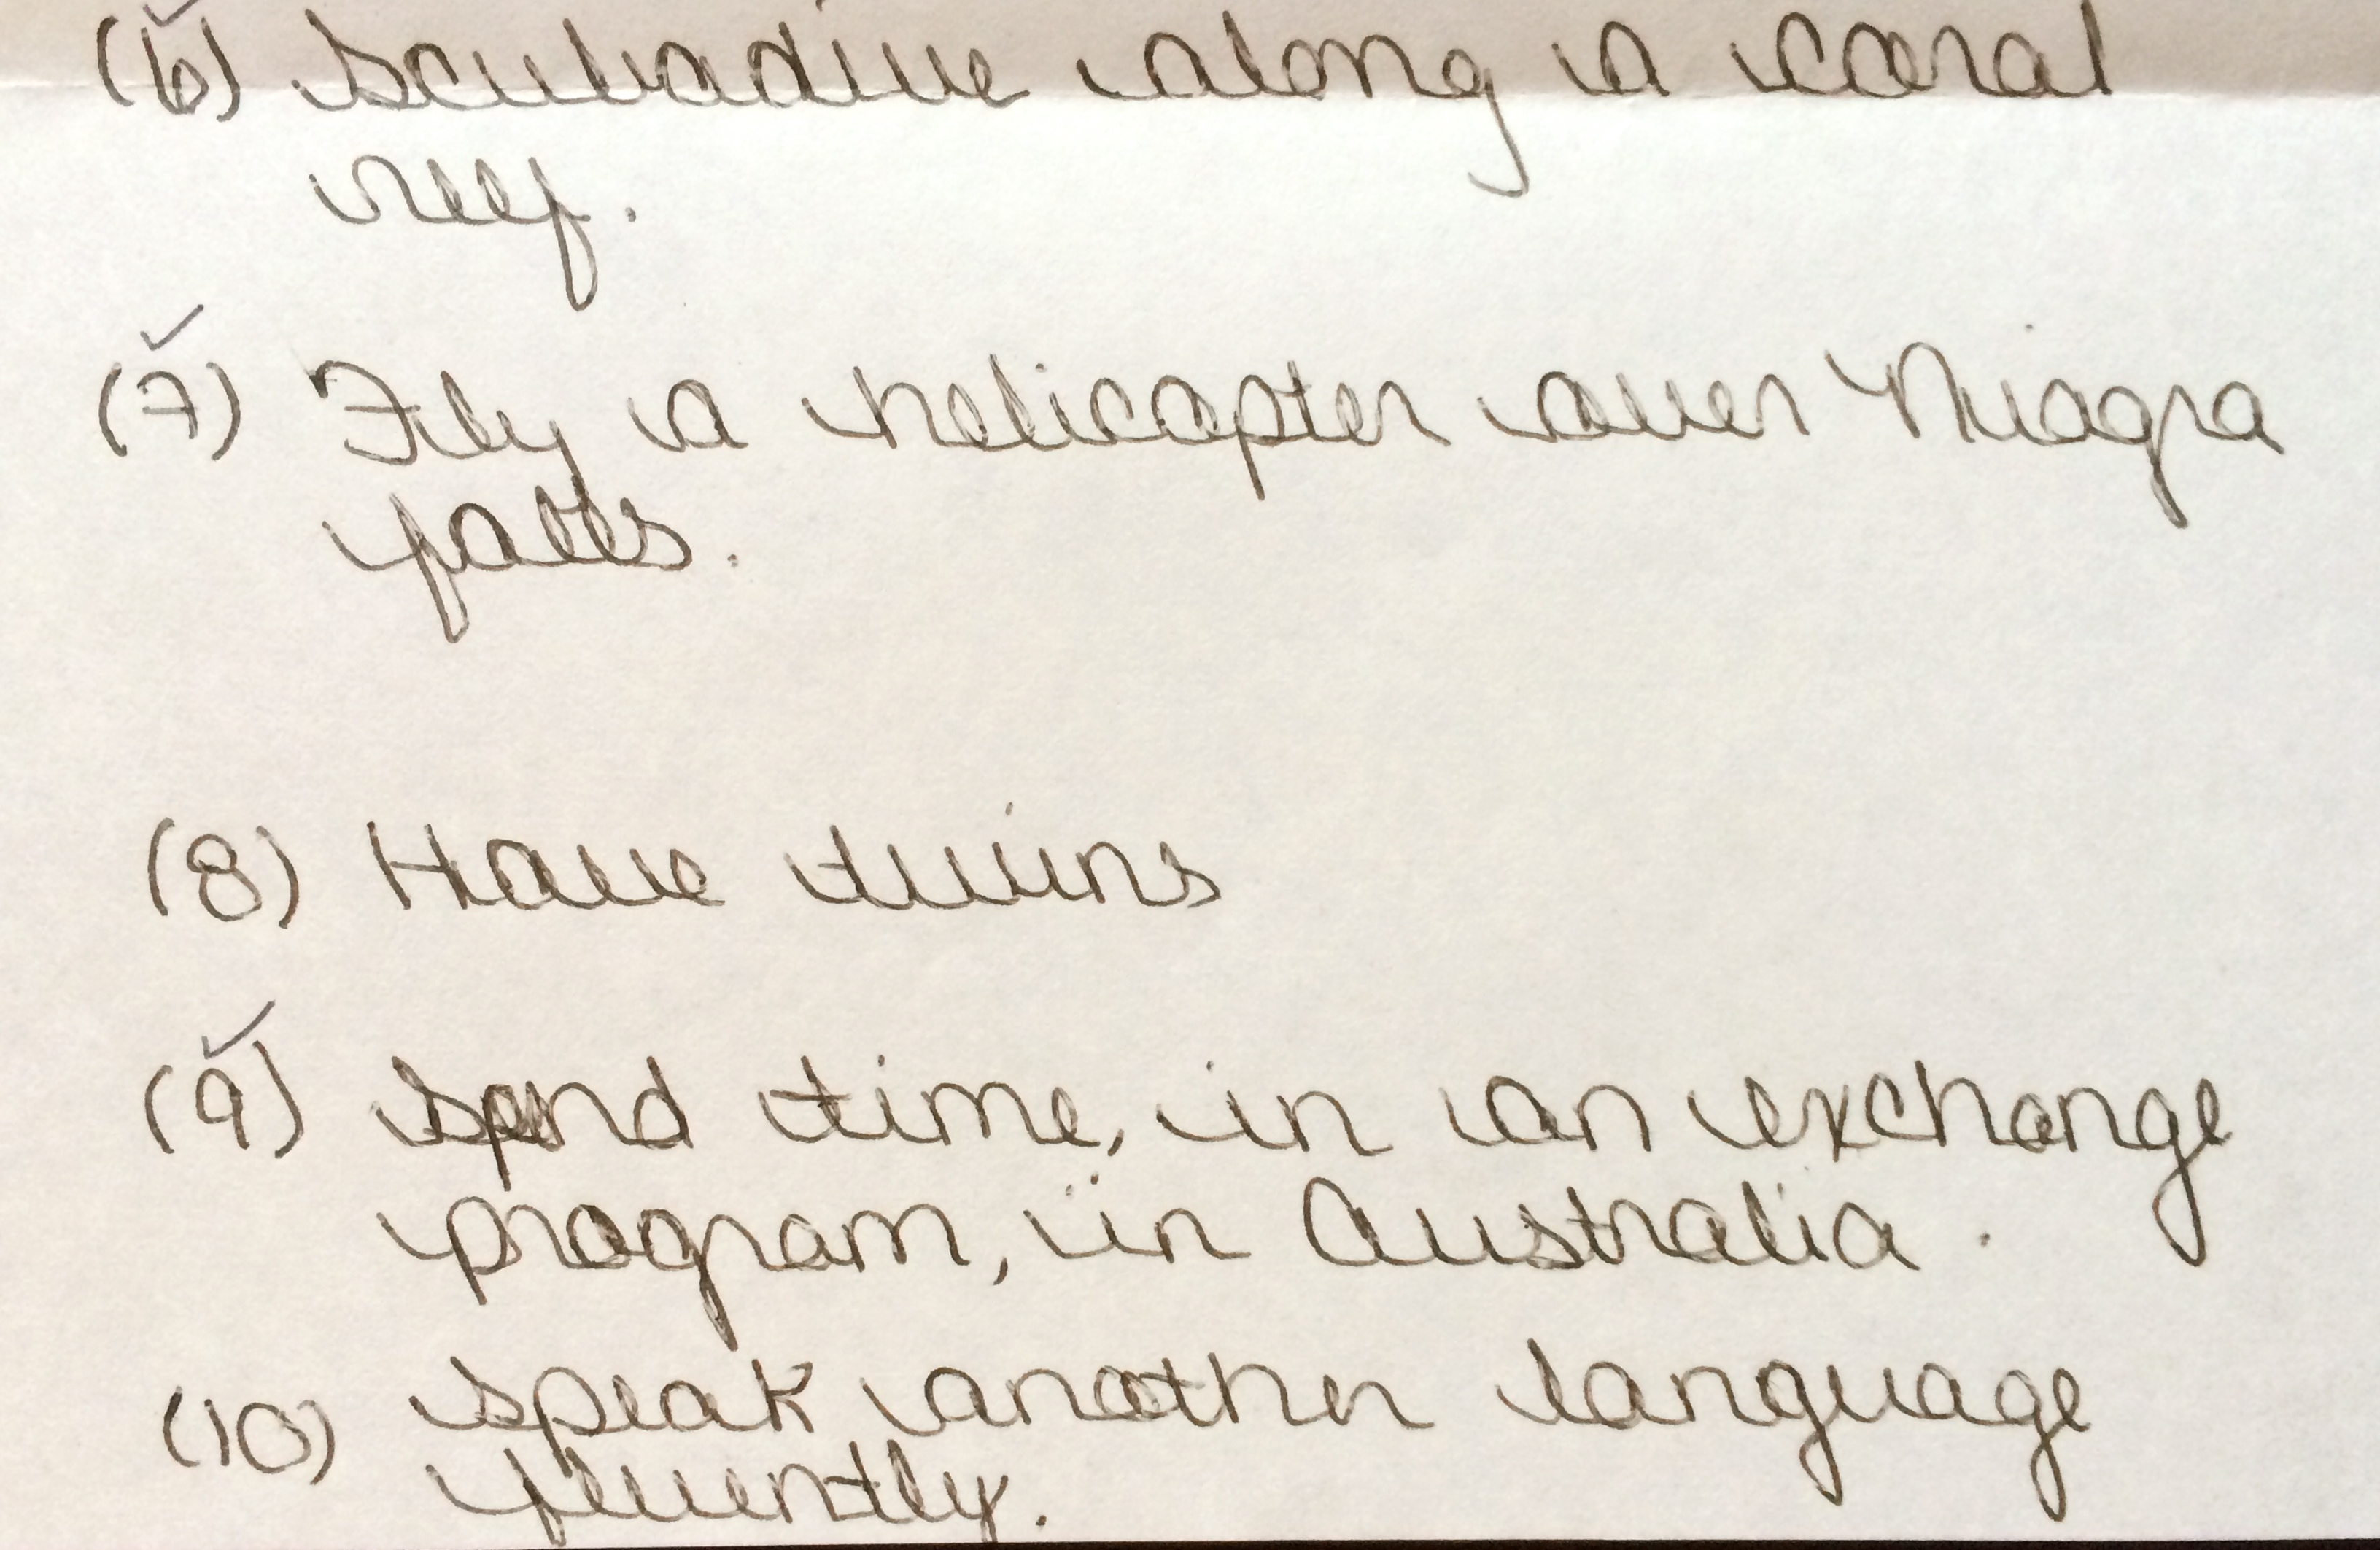 (6) Scubadive along a coral
reef.
(7) Fly a helicopter over Niagra
falls.
(8) Have twins
(9) Spend time, in an exchange
program, in Australia.
(10) speak another language
fluently.